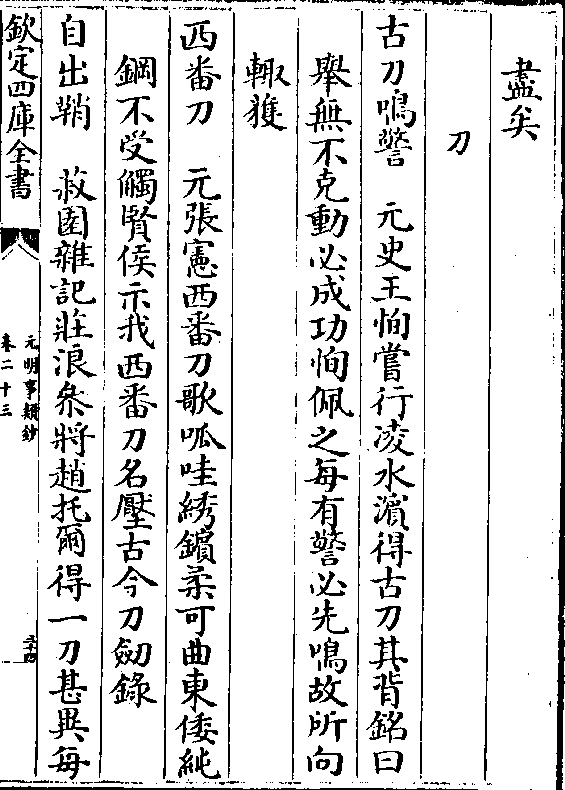 盡矣
刀
古刀鳴警　元史王恂嘗行凌水濵得古刀其背銘曰
舉無不克動必成功恂佩之每有警必先鳴故所向
輙獲
西番刀　元張憲西番刀歌呱哇綉鑌柔可曲東倭純
鋼不受觸賢侯示我西番刀名壓古今刀劒錄
自出鞘　菽園雜記莊浪叅將趙托爾得一刀甚異每
欽定四庫全書
元明事類鈔
卷二十三
三十四